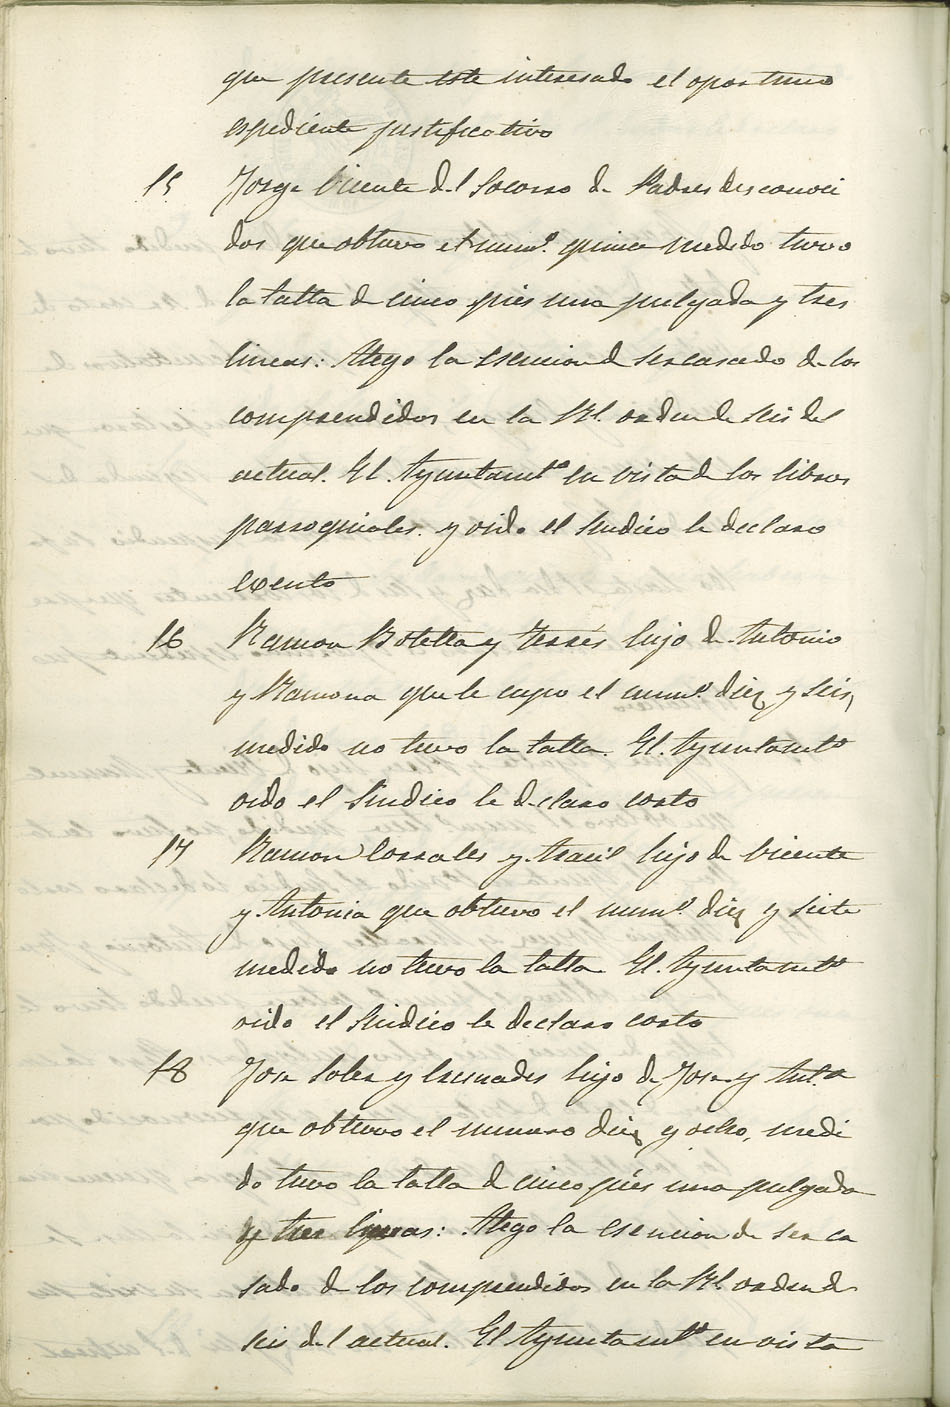 que presente este interesado el oportuno
espediente justificativo
15 Jorge Vicente del Socorro de Padres desconoci
dos que obtuvo el num.º quince medido tuvo
la talla de cinco pies una pulgada y tres
lineas: Alego la esencion de ser casado de los
comprendidos en la Rl. orden de seis del
actual. El Ayuntamt.º en vista de los libros
parroquiales y oido el Sindico le declaro
esento
16 Ramon Botella y Terres hijo de Antonio
y Ramona que le cupo el num.º diez y seis,
medido no tuvo la talla. El Ayuntamt.º
oido el Sindico le declaro corto
17 Ramon Corrales y Aracil hijo de Vicente
y Antonia que obtuvo el num.º diez y siete
medido no tuvo la talla. El Ayuntamt.º
oido el Sindico le declaro corto
18 Jose Soler y hijo de Jose y Ant.ª
que obtuvo el numero diez y ocho, medi
do tuvo la talla de cinco pies una pulgada
y tres lineas: Alego la esencion de ser ca
sado de los comprendidos en la Rl. orden de
seis del actual. El Ayuntamt.º en vista